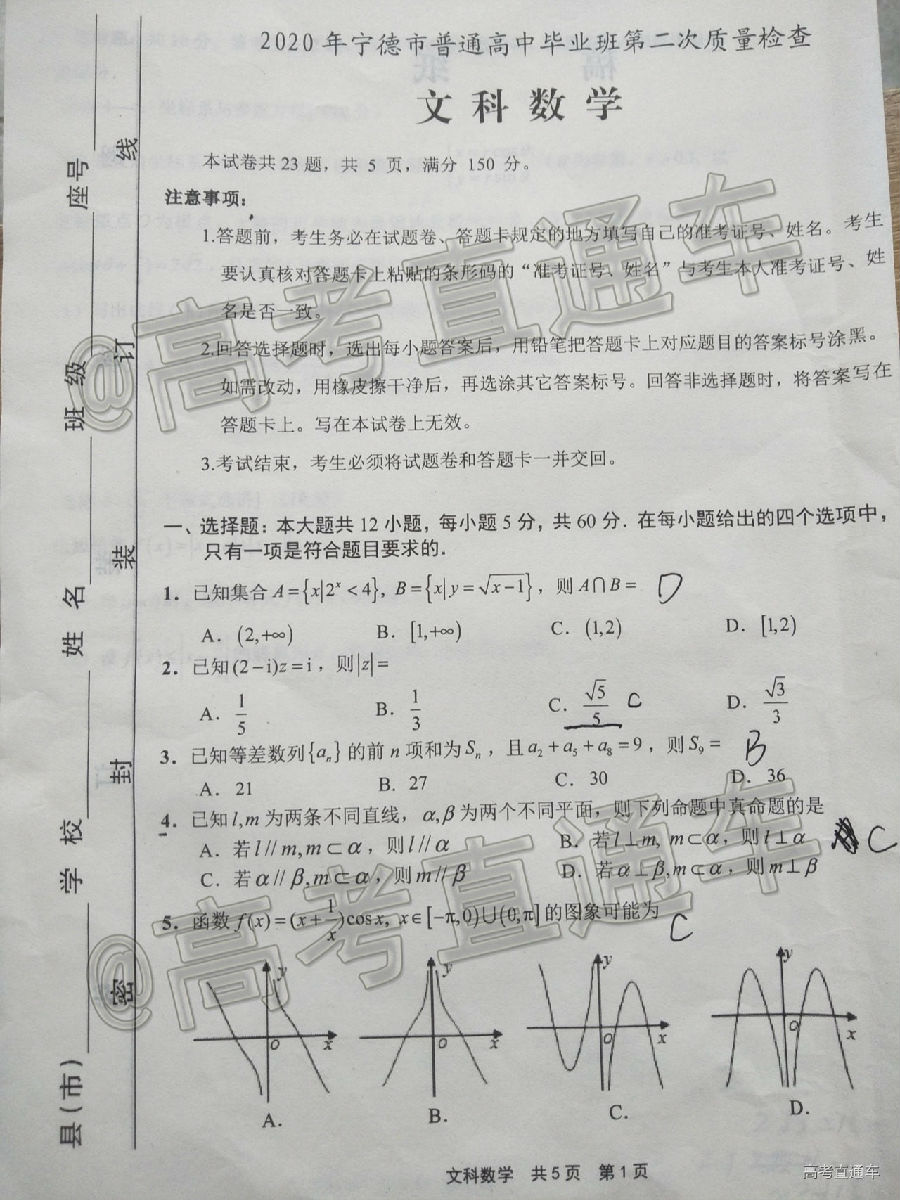 2020 年宁德市普通高中毕业班第二次质量检查
文 科 数 学
本试卷共 23 题，共 5 页，满分 150 分。
注意事项：
1.答题前，考生务必在试题卷、答题卡规定的地方填写自己的准考证号、姓名。考生
要认真核对答题卡上粘贴的条形码的“准考证号、姓名”与考生本人准考证号、姓
名是否一致。
2.回答选择题时，选出每小题答案后，用铅笔把答题卡上对应题目的答案标号涂黑。
如需改动，用橡皮擦干净后，再选涂其它答案标号。回答非选择题时，将答案写在
答题卡上。写在本试卷上无效。
3.考试结束，考生必须将试题卷和答题卡一并交回。
一、选择题：本大题共 12 小题，每小题 5 分，共 60 分．在每小题给出的四个选项中，
只有一项是符合题目要求的．
1．已知集合 A={x|2ˣ<4}, B={x|y=√(x−1)}，则 A∩B= D
A．(2,+∞) B．[1,+∞) C．(1,2) D．[1,2)
2．已知(2−i)z=i，则|z|=
A．1/5 B．1/3 C．√5/5 C D．√3/3
3．已知等差数列{aₙ}的前 n 项和为Sₙ，且a₂+a₅+a₈=9，则S₉= B
A．21 B．27 C．30 D．36
4．已知l,m为两条不同直线，α,β为两个不同平面，则下列命题中真命题的是
A．若l//m,m⊂α，则l//α B．若l⊥m, m⊂α，则l⊥α C
C．若α//β,m⊂α，则m//β D．若α⊥β,m⊂α，则m⊥β
5．函数f(x)=(x+1/x)cosx, x∈[−π,0)∪(0,π]的图象可能为 C
y y y y
O x O x O x O x
A． B． C． D．
文科数学 共5页 第1页
县(市) 学 校 姓 名 班 级 座号
密 封 装 订 线
@高考直通车
@高考直通车
高考直通车